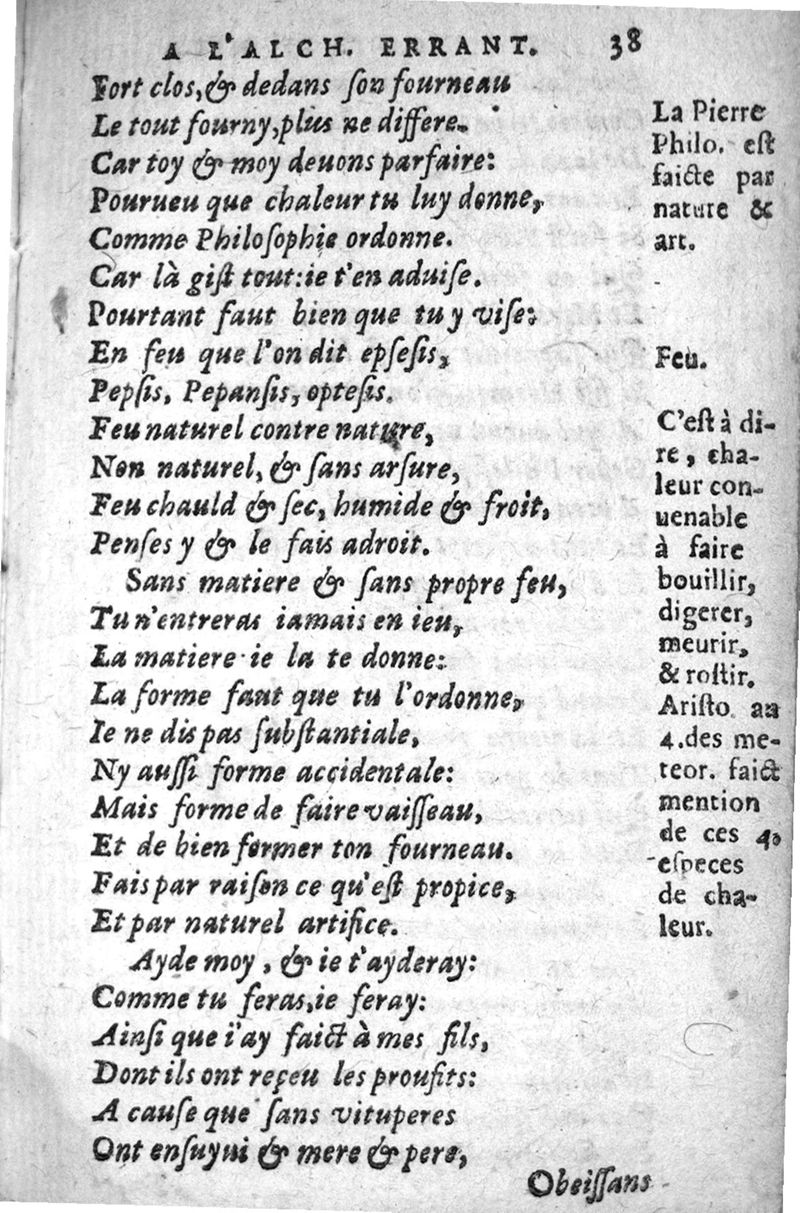 A L'ALCH. ERRANT. 38
Fort clos, & dedans ſon fourneau
Le tout fourny, plus ne differe.
Car toy & moy deuons parfaire:
Pourueu que chaleur tu luy donne,
Comme Philoſophie ordonne.
Car là giſt tout: ie t'en aduiſe.
Pourtant faut bien que tu y viſe:
En feu que l'on dit epſeſis,
Pepſis, Pepanſis, opteſis.
Feu naturel contre nature,
Non naturel, & ſans arſure,
Feu chauld & ſec, humide & froit,
Penſes y & le fais adroit.
Sans matiere & ſans propre feu,
Tu n'entreras iamais en ieu,
La matiere ie la te donne:
La forme faut que tu l'ordonne,
Ie ne dis pas ſubſtantiale,
Ny auſſi forme accidentale:
Mais forme de faire vaiſſeau,
Et de bien former ton fourneau.
Fais par raiſon ce qu'eſt propice,
Et par naturel artifice.
Ayde moy, & ie t'ayderay:
Comme tu feras, ie feray:
Ainſi que i'ay faict à mes fils,
Dont ils ont reçeu les proufits:
A cauſe que ſans vituperes
Ont enſuyui & mere & pere,
Obeiſſans
La Pierre
Philo. eſt
faicte par
nature &
art.
Feu.
C'eſt à di-
re, cha-
leur con-
uenable
à faire
bouillir,
digerer,
meurir,
& roſtir.
Ariſto. au
4. des me-
teor. faict
mention
de ces 4.
eſpeces
de cha-
leur.